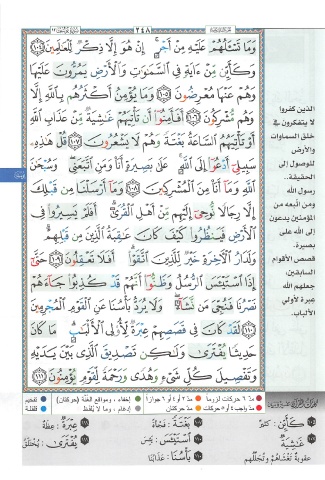 ٢٤٨
وَمَا تَسْـَٔلُهُمْ عَلَيْهِ مِنْ أَجْرٍ ۚ إِنْ هُوَ إِلَّا ذِكْرٌ لِّلْعَٰلَمِينَ ١٠٤
وَكَأَيِّن مِّنْ ءَايَةٍ فِى ٱلسَّمَٰوَٰتِ وَٱلْأَرْضِ يَمُرُّونَ عَلَيْهَا
وَهُمْ عَنْهَا مُعْرِضُونَ ١٠٥ وَمَا يُؤْمِنُ أَكْثَرُهُم بِٱللَّهِ إِلَّا
وَهُم مُّشْرِكُونَ ١٠٦ أَفَأَمِنُوٓا۟ أَن تَأْتِيَهُمْ غَٰشِيَةٌ مِّنْ عَذَابِ ٱللَّهِ
أَوْ تَأْتِيَهُمُ ٱلسَّاعَةُ بَغْتَةً وَهُمْ لَا يَشْعُرُونَ ١٠٧ قُلْ هَٰذِهِۦ
سَبِيلِىٓ أَدْعُوٓا۟ إِلَى ٱللَّهِ ۚ عَلَىٰ بَصِيرَةٍ أَنَا۠ وَمَنِ ٱتَّبَعَنِى ۖ وَسُبْحَٰنَ
ٱللَّهِ وَمَآ أَنَا۠ مِنَ ٱلْمُشْرِكِينَ ١٠٨ وَمَآ أَرْسَلْنَا مِن قَبْلِكَ
إِلَّا رِجَالًا نُّوحِىٓ إِلَيْهِم مِّنْ أَهْلِ ٱلْقُرَىٰٓ ۗ أَفَلَمْ يَسِيرُوا۟ فِى
ٱلْأَرْضِ فَيَنظُرُوا۟ كَيْفَ كَانَ عَٰقِبَةُ ٱلَّذِينَ مِن قَبْلِهِمْ ۗ
وَلَدَارُ ٱلْءَاخِرَةِ خَيْرٌ لِّلَّذِينَ ٱتَّقَوْا۟ ۗ أَفَلَا تَعْقِلُونَ ١٠٩ حَتَّىٰٓ
إِذَا ٱسْتَيْـَٔسَ ٱلرُّسُلُ وَظَنُّوٓا۟ أَنَّهُمْ قَدْ كُذِبُوا۟ جَآءَهُمْ
نَصْرُنَا فَنُجِّىَ مَن نَّشَآءُ ۖ وَلَا يُرَدُّ بَأْسُنَا عَنِ ٱلْقَوْمِ ٱلْمُجْرِمِينَ
١١٠ لَقَدْ كَانَ فِى قَصَصِهِمْ عِبْرَةٌ لِّأُو۟لِى ٱلْأَلْبَٰبِ ۗ مَا كَانَ
حَدِيثًا يُفْتَرَىٰ وَلَٰكِن تَصْدِيقَ ٱلَّذِى بَيْنَ يَدَيْهِ
وَتَفْصِيلَ كُلِّ شَىْءٍ وَهُدًى وَرَحْمَةً لِّقَوْمٍ يُؤْمِنُونَ ١١١
الذين كفروا
لا يتفكرون في
خلق السماوات
والأرض
للوصول إلى
الحقيقة..
رسول الله
ومن اتبعه من
المؤمنين يدعون
إلى الله على
بصيرة.
قصص الأقوام
السابقين،
جعلهم الله
عبرة لأولي
الألباب.
مد ٦ حركات لزوماً
مد ٢ أو ٤ أو ٦ جوازاً
إخفاء، ومواقع الغنّة (حركتان)
تفخيم
مد حركتان
إدغام، وما لا يُلفظ
قلقلة
كَأَيِّن
غَٰشِيَةٌ
عقوبة تغشاهم وتجلّلهم
بَغْتَةً: فجأة
اسْتَيْأَسَ: يئس
بَأْسُنَا: عذابنا
عِبْرَةٌ: عظة
يُفْتَرَى: يُختلق